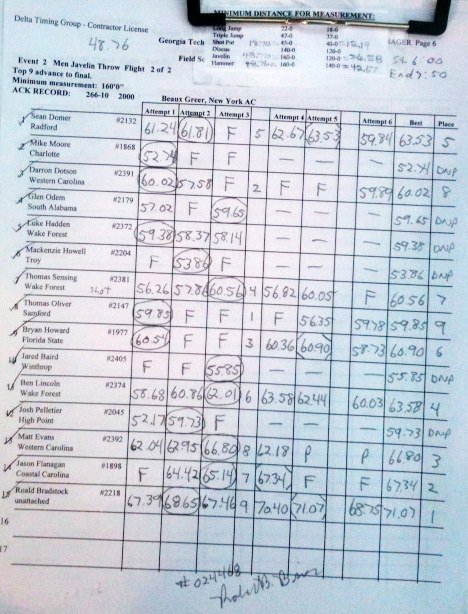 Delta Timing Group - Contractor License
48.76
Georgia Tech
MINIMUM DISTANCE FOR MEASUREMENT
Long Jump 22-0 18-0
Triple Jump 47-0 37-0
Shot Put 45-0 40-0 12.19
Discus 140-0 120-0
Javelin 160-0 120-0 36.58
Hammer 48.76 160-0 140-0 42.67
Page 6
St 6:00
End 7:50
Field
Event 2 Men Javelin Throw Flight 2 of 2
Top 9 advance to final.
Minimum measurement: 160'0"
ACK RECORD: 266-10 2000 Beaux Greer, New York AC
Attempt 1 Attempt 2 Attempt 3 Attempt 4 Attempt 5 Attempt 6 Best Place
1 Sean Domer #2132 61.24 61.81 F 5 62.67 63.53 59.84 63.53 5
Radford
2 Mike Moore #1868 52.74 F F — — — 52.74 DNP
Charlotte
3 Darron Dotson #2391 60.02 57.58 F 2 F F 59.89 60.02 8
Western Carolina
4 Glen Odem #2179 57.02 F 59.65 — — — 59.65 DNP
South Alabama
5 Luke Hadden #2372 59.38 58.37 58.14 — — — 59.38 DNP
Wake Forest
6 Mackenzie Howell #2204 F 53.86 F — — — 53.86 DNP
Troy
7 Thomas Sensing #2381 56.26 57.86 60.56 4 56.82 60.05 F 60.56 7
Wake Forest shot
8 Thomas Oliver #2147 59.85 F F 1 F 56.35 59.78 59.85 9
Samford
9 Bryan Howard #1977 60.54 F F 3 60.36 60.90 58.73 60.90 6
Florida State
10 Jared Baird #2405 F F 55.85 — — — 55.85 DNP
Winthrop
11 Ben Lincoln #2374 58.68 60.86 62.01 6 63.58 62.44 60.03 63.58 4
Wake Forest
12 Josh Pelletier #2045 52.17 59.73 F — — — 59.73 DNP
High Point
13 Matt Evans #2392 62.04 62.95 66.80 8 62.18 P P 66.80 3
Western Carolina
14 Jason Flanagan #1898 F 64.42 65.14 7 67.34 F F 67.34 2
Coastal Carolina
15 Roald Bradstock #2218 67.39 68.65 67.46 9 70.40 71.07 68.75 71.07 1
unattached
16
17
# 024468